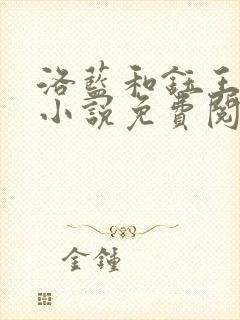 洛藍和鈺王
小說免費閱
金鍾